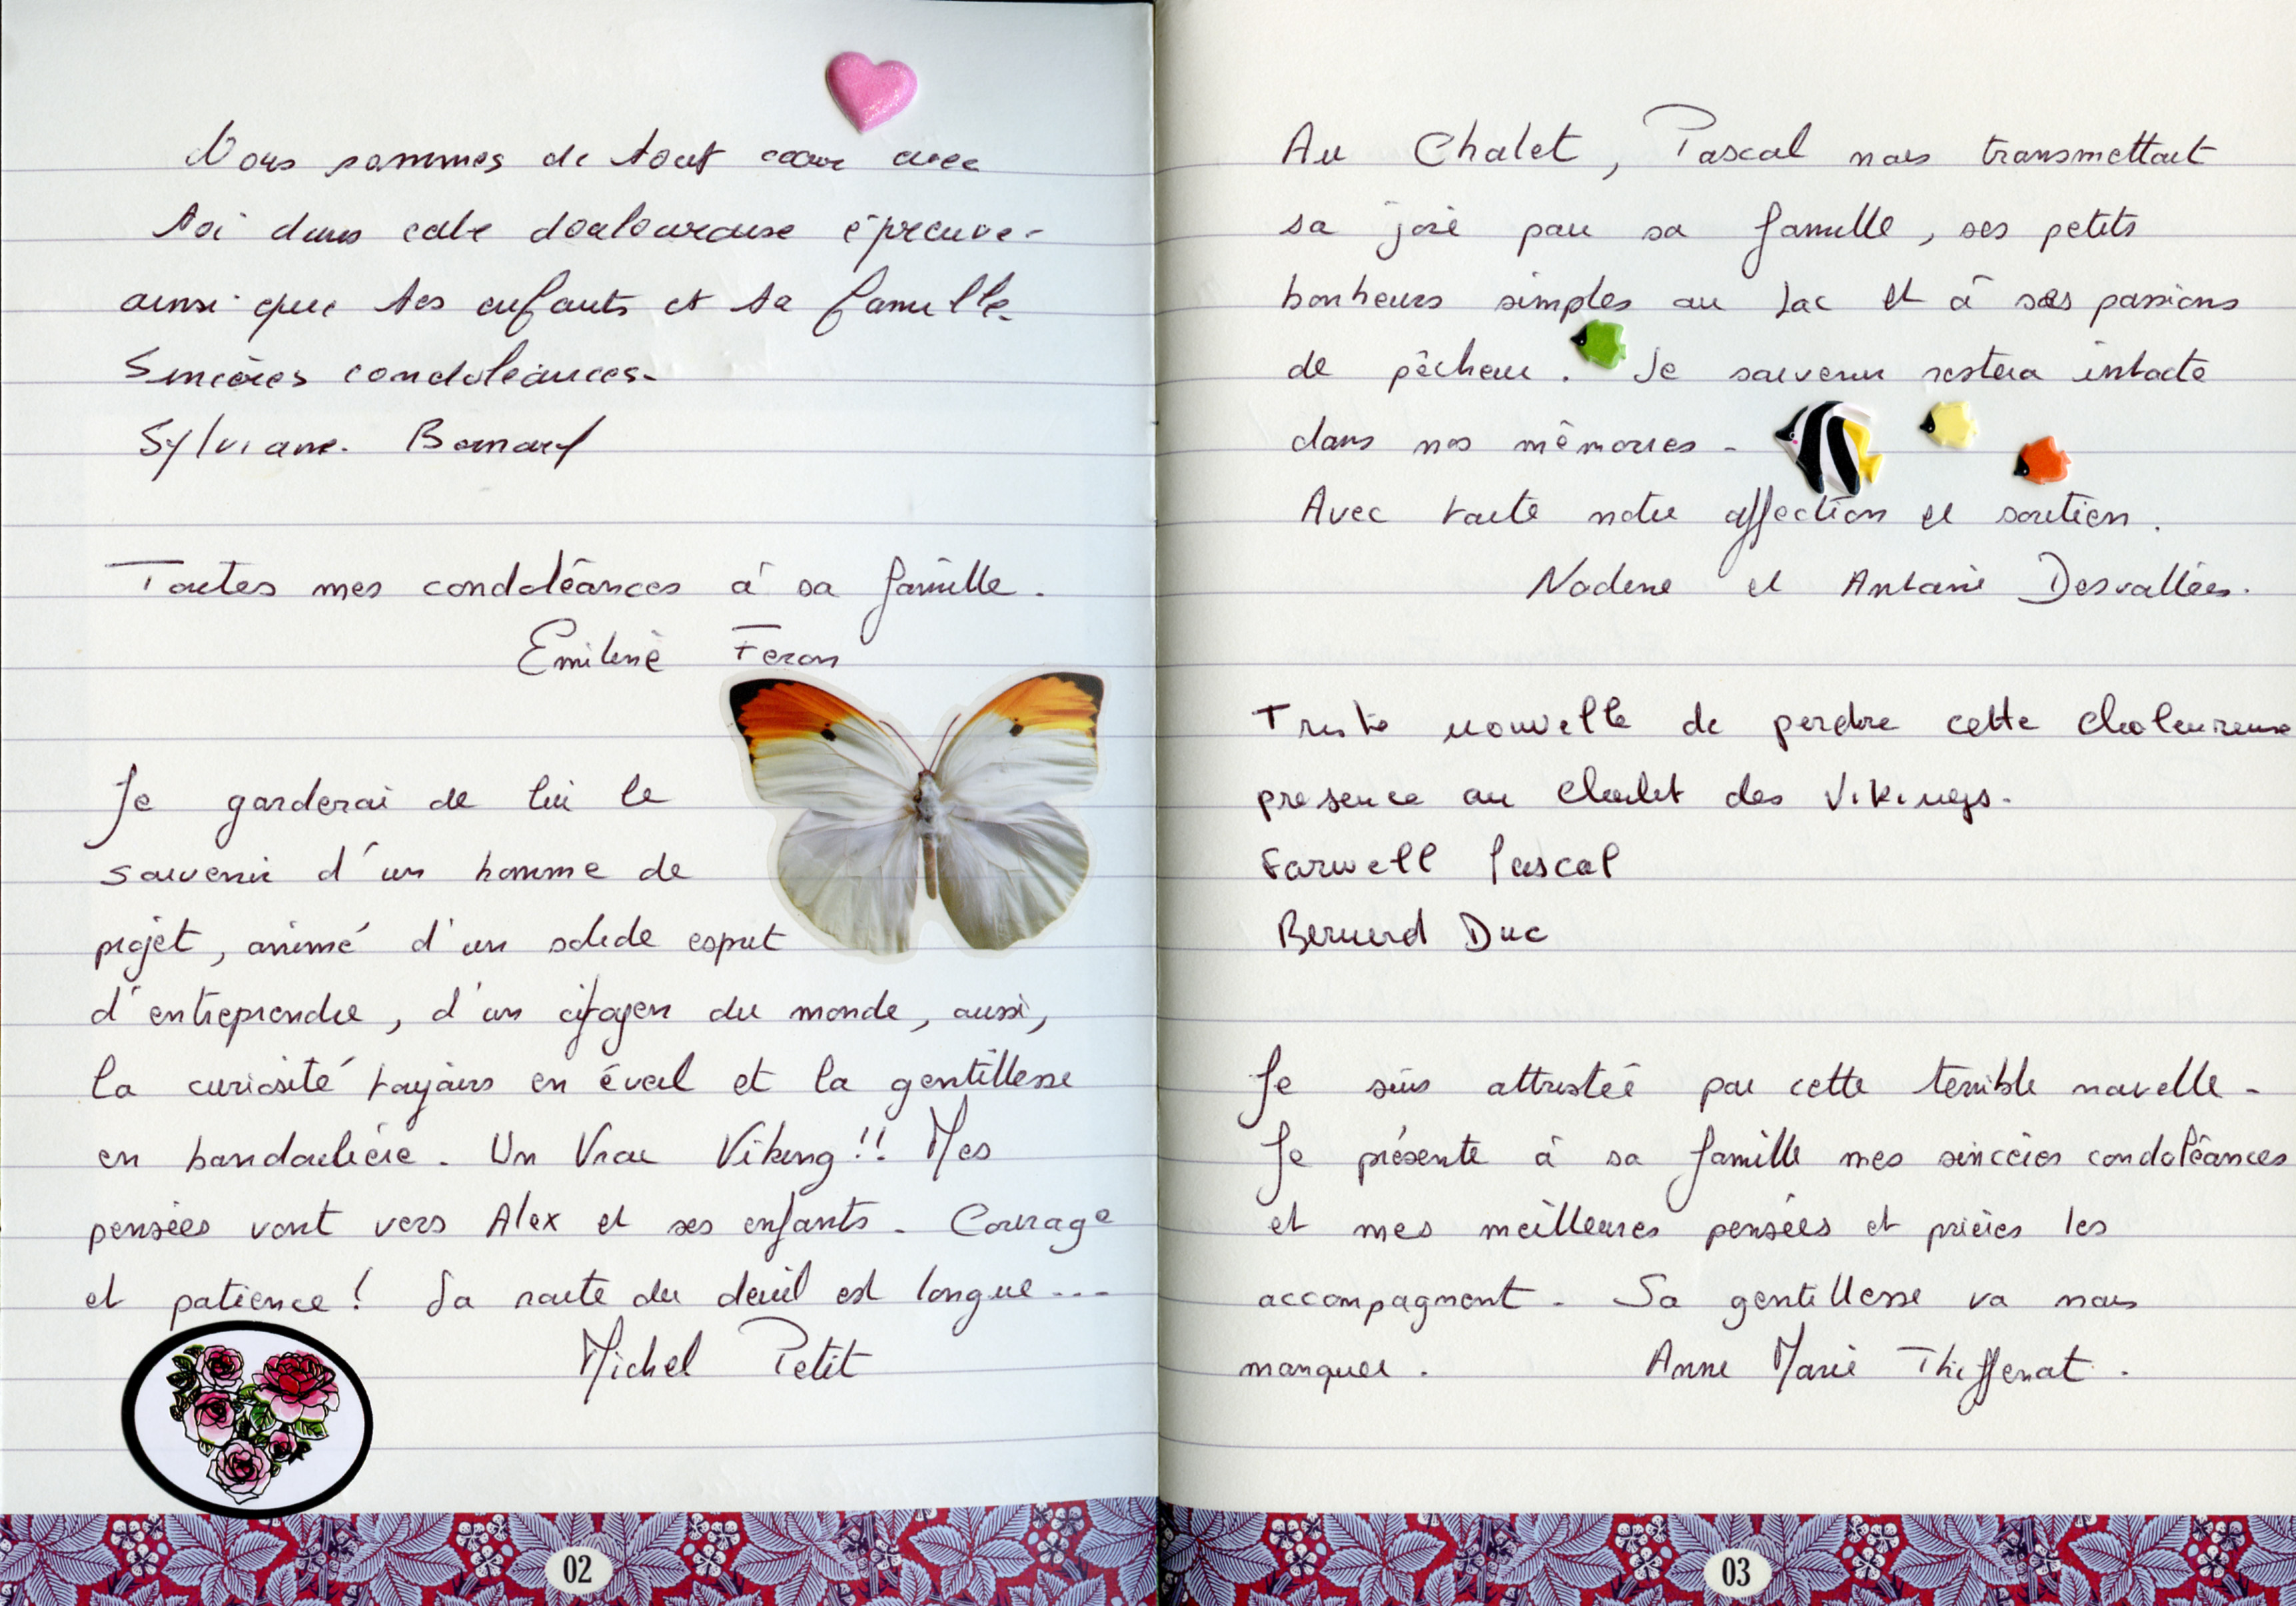 Nous sommes de tout cœur avec
toi dans cette douloureuse épreuve-
ainsi que tes enfants et ta famille.
Sincères condoléances-
Sylviane. Bernard
Toutes mes condoléances à sa famille.
Emilenè Feron
Je garderai de lui le
souvenir d'un homme de
projet, animé d'un solide esprit
d'entreprendre, d'un citoyen du monde, aussi,
la curiosité toujours en éveil et la gentillesse
en bandoulière. Un Vrai Viking!! Mes
pensées vont vers Alex et ses enfants. Courage
et patience! La route du deuil est longue...
Michel Petit
02
Au Chalet, Pascal nous transmettait
sa joie par sa famille, ses petits
bonheurs simples au Lac et à ses passions
de pêcheur. Le souvenir restera intacte
dans nos mémoires-
Avec toute notre affection et soutien.
Nadene et Antoine Desvallées.
Triste nouvelle de perdre cette chaleureuse
presence au chalet des Vikings.
Farwell Pascal
Bernard Duc
Je suis attristée par cette terrible nouvelle-
Je présente à sa famille mes sincères condoléances
et mes meilleures pensées et prières les
accompagnent. Sa gentillesse va nous
manquer. Anne Marie Thiffenat.
03